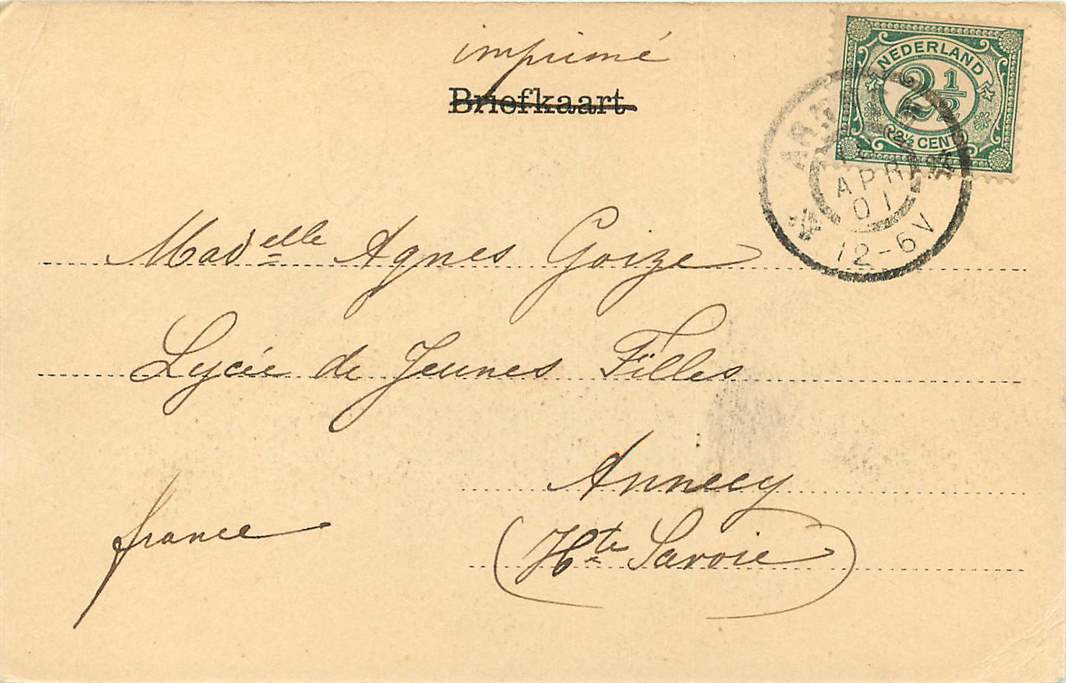 imprimé
Briefkaart
NEDERLAND
2½
CENT
APR
01
12-6V
Madelle Agnes Goize
Lycée de Jeunes Filles
Annecy
france
(Hte Savoie)